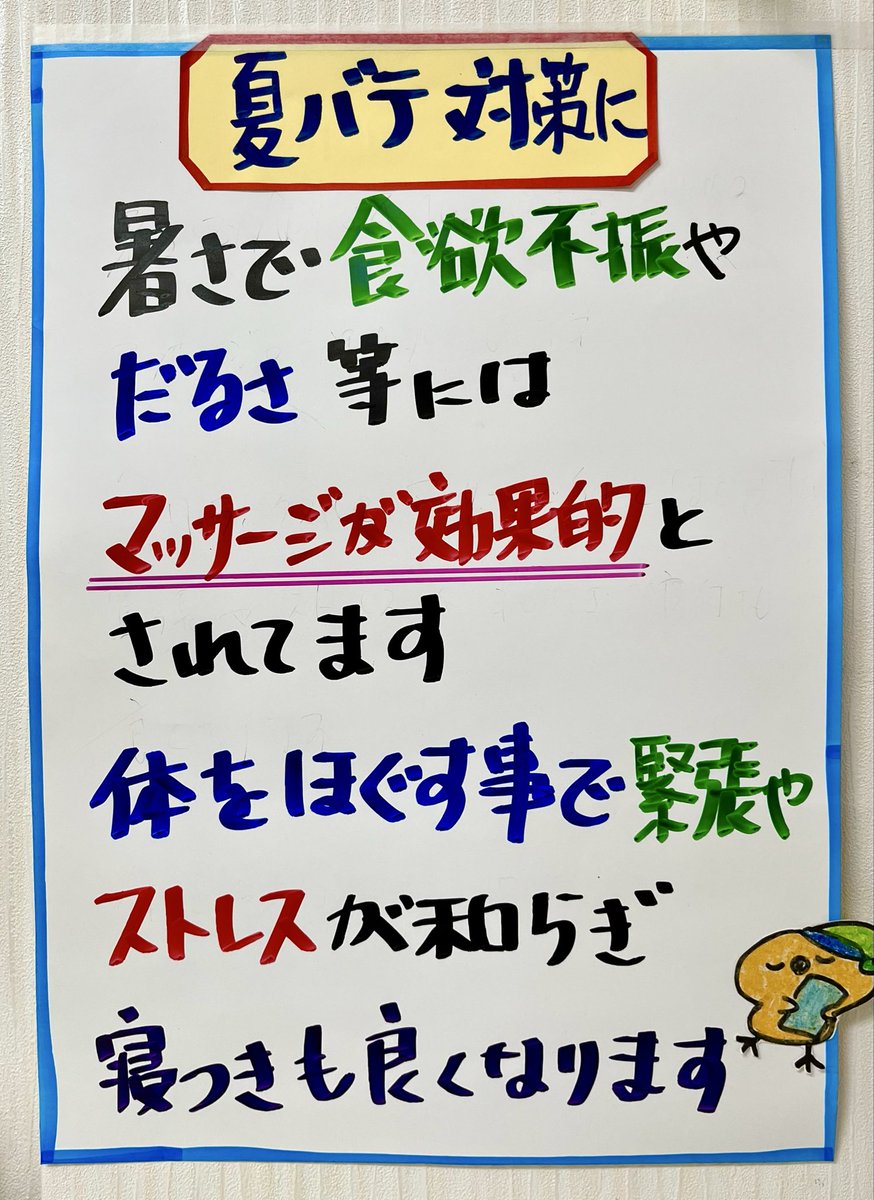 夏バテ対策に
暑さで食欲不振や
だるさ等には
マッサージが効果的と
されてます
体をほぐす事で緊張や
ストレスが和らぎ
寝つきも良くなります